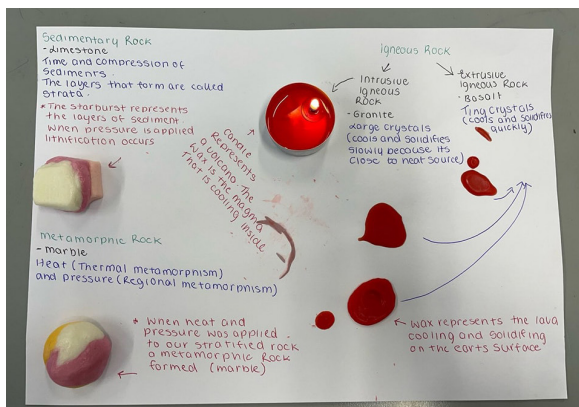 Sedimentary Rock
- Limestone
Time and compression of
sediments.
The layers that form are called
strata.
* The starburst represents
the layers of sediment.
When pressure is applied
lithification occurs
metamorphic Rock
- marble
Heat (Thermal metamorphism)
and pressure (Regional metamorphism)
* When heat and
pressure was applied
to our stratified rock
a metamorphic Rock
formed (marble)
Candle
Represents
a volcano. The
wax is the magma
that is cooling inside
igneous Rock
Intrusive
igneous
Rock
- Granite
Large Crystals
(cools and solidifies
slowly because its
close to heat source)
extrusive
igneous Rock
- Basalt
Tiny Crystals
(cools and solidifies
quickly)
wax represents the lava
cooling and solidifing
on the earts surface